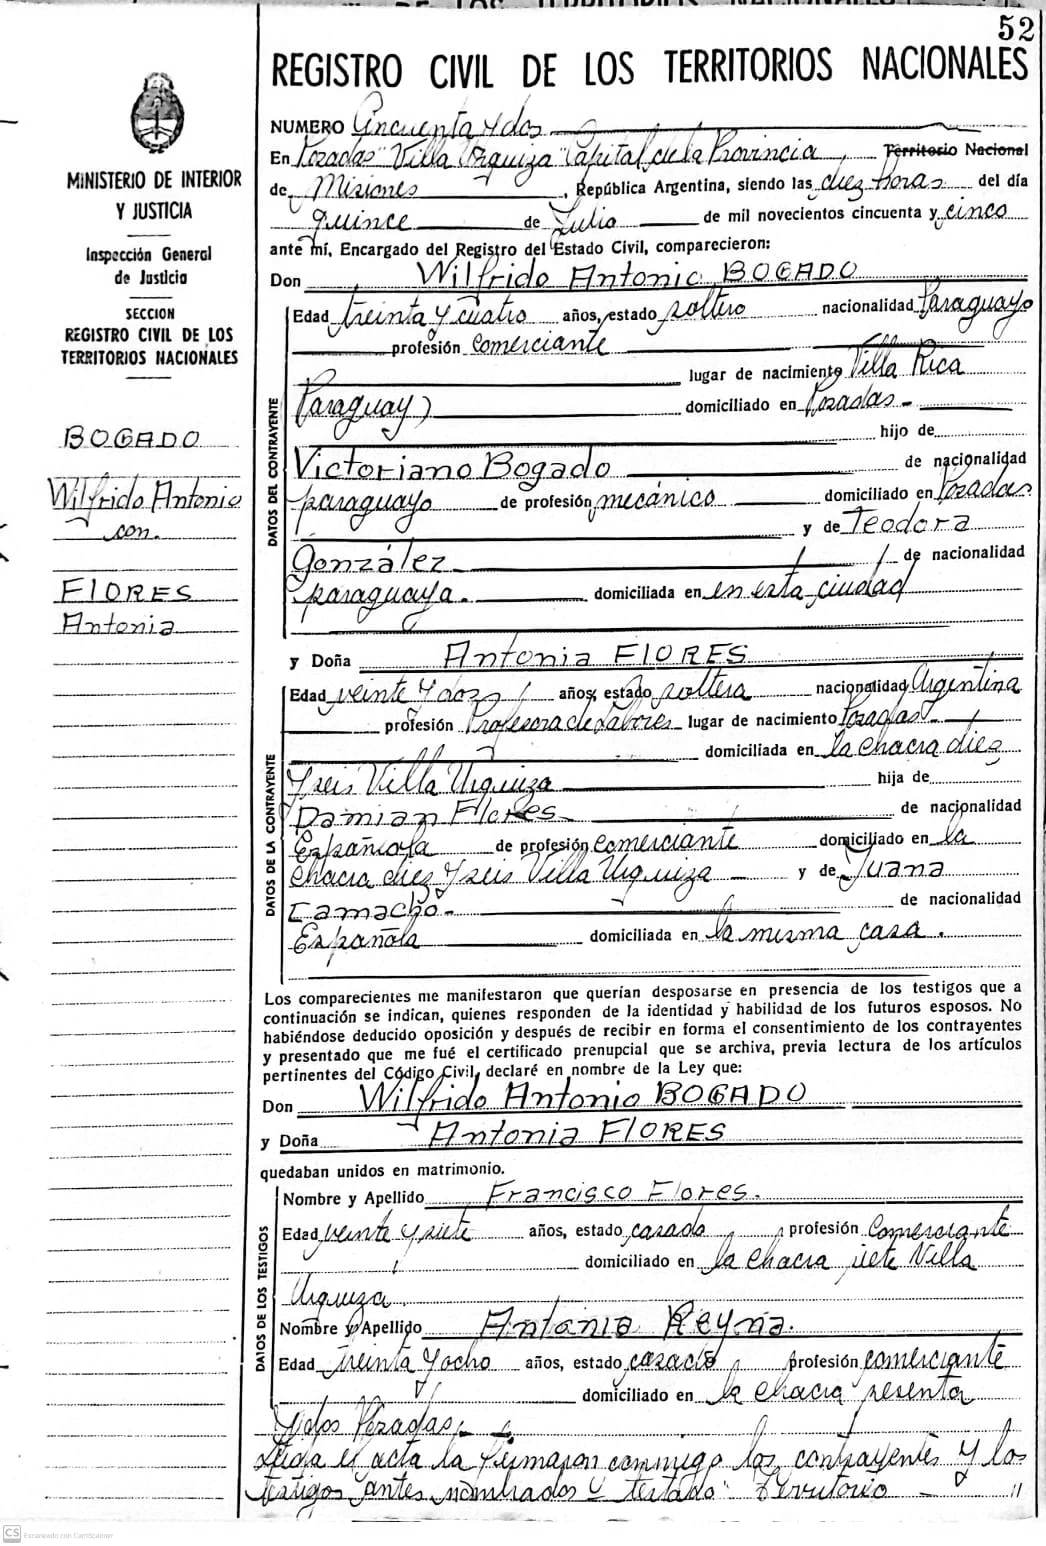 52
REGISTRO CIVIL DE LOS TERRITORIOS NACIONALES
MINISTERIO DE INTERIOR
Y JUSTICIA
Inspección General
de Justicia
SECCION
REGISTRO CIVIL DE LOS
TERRITORIOS NACIONALES
BOGADO
Wilfrido Antonio
con.
FLORES
Antonia
NUMERO Cincuenta y dos
En Pozadas "Villa Urquiza" Capital de la Provincia, Territorio Nacional
de Misiones, República Argentina, siendo las diez Horas del día
quince de Julio de mil novecientos cincuenta y cinco
ante mí, Encargado del Registro del Estado Civil, comparecieron:
Don Wilfrido Antonio BOGADO
DATOS DEL CONTRAYENTE
Edad treinta y cuatro años, estado soltero nacionalidad Paraguayo
profesión Comerciante
lugar de nacimiento Villa Rica
Paraguay) domiciliado en Pozadas -
hijo de
Victoriano Bogado de nacionalidad
paraguayo de profesión mecánico domiciliado en Pozadas
y de Teodora
González de nacionalidad
paraguaya. domiciliada en en esta ciudad
y Doña Antonia FLORES
DATOS DE LA CONTRAYENTE
Edad veinte y dos años, estado soltera nacionalidad Argentina
profesión Profesora de Labores lugar de nacimiento Pozadas
domiciliada en la chacra diez
y seis Villa Urquiza hija de
Damian Flores de nacionalidad
Española de profesión comerciante domiciliado en la
chacra diez y seis Villa Urquiza y de Juana
Camacho de nacionalidad
Española domiciliada en la misma casa.
Los comparecientes me manifestaron que querían desposarse en presencia de los testigos que a
continuación se indican, quienes responden de la identidad y habilidad de los futuros esposos. No
habiéndose deducido oposición y después de recibir en forma el consentimiento de los contrayentes
y presentado que me fué el certificado prenupcial que se archiva, previa lectura de los artículos
pertinentes del Código Civil, declaré en nombre de la Ley que:
Don Wilfrido Antonio BOGADO
y Doña Antonia FLORES
quedaban unidos en matrimonio.
DATOS DE LOS TESTIGOS
Nombre y Apellido Francisco Flores.
Edad veinte y siete años, estado casado profesión Comerciante
domiciliado en la chacra siete Villa
Urquiza
Nombre y Apellido Antonia Reyna.
Edad treinta y ocho años, estado casado profesión comerciante
domiciliado en la chacra sesenta
y dos Pozadas
Leída el acta la firmaron conmigo los contrayentes y los
testigos antes nombrados y testado "Territorio
CS Escaneado con CamScanner